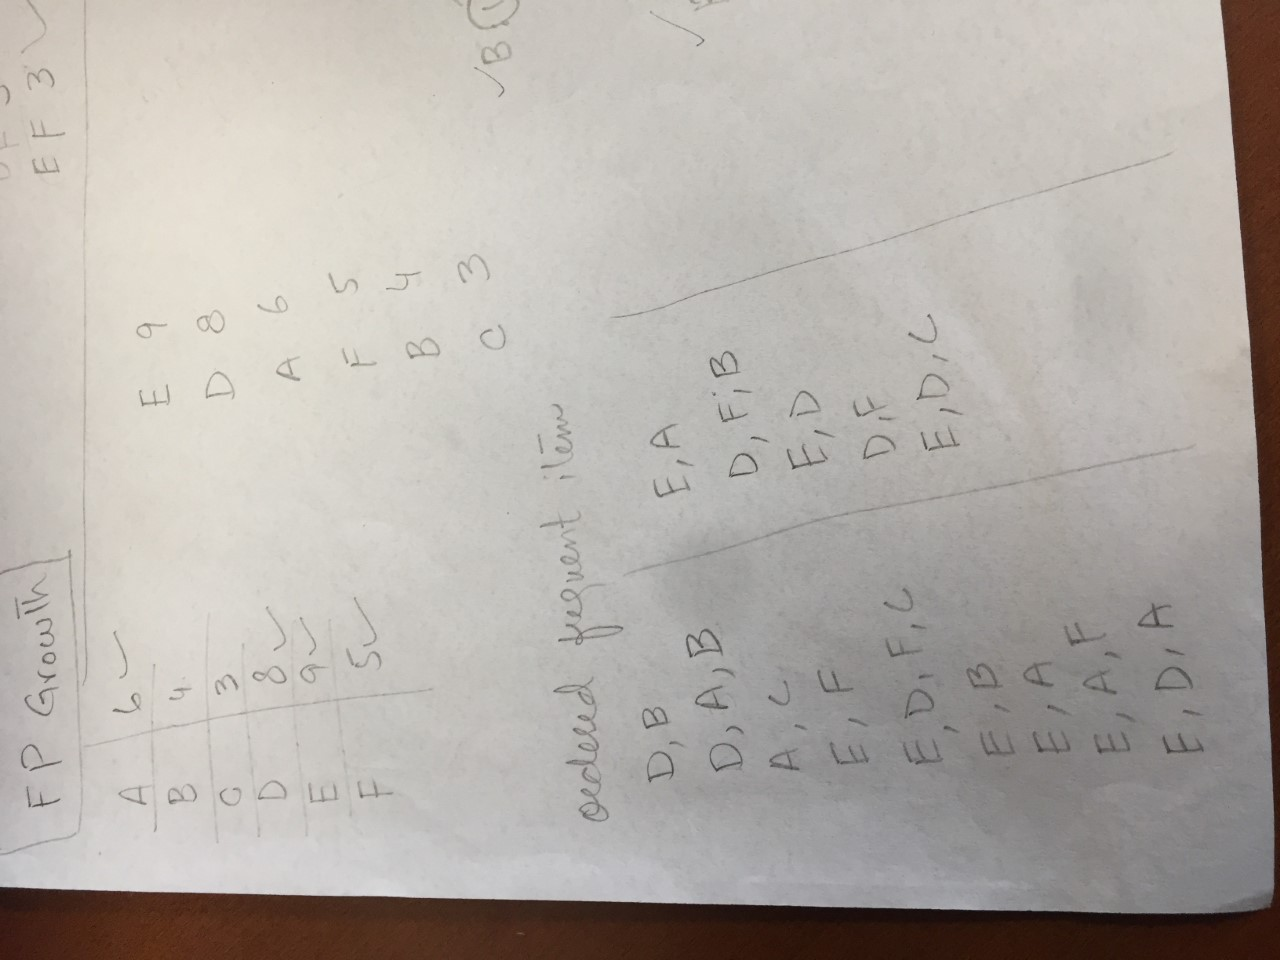 EF 3 ✓
FP Growth
A 6 ✓
B 4
C 3
D 8 ✓
E 9 ✓
F 5 ✓
E 9
D 8
A 6
F 5
B 4
C 3
✓ B
ordered frequent item
D, B
D, A, B
A, C
E, F
E, D, F, C
E, B
E, A
E, A, F
E, D, A
E, A
D, F, B
E, D
D, F
E, D, C